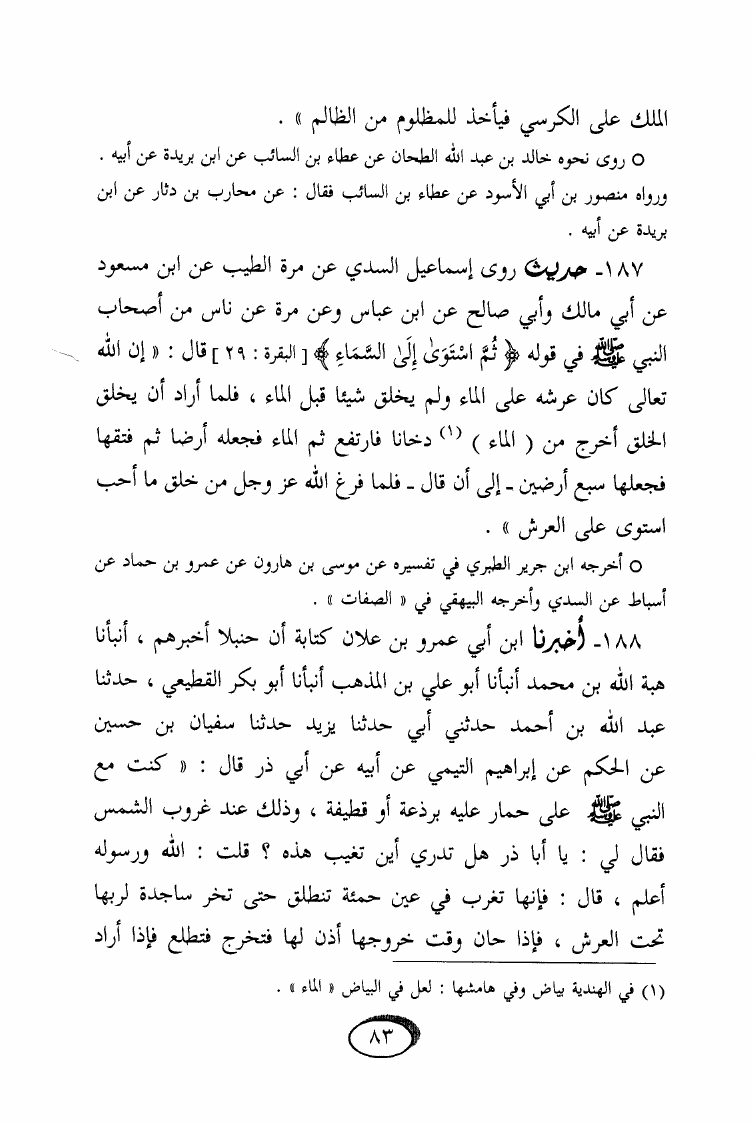 الملك على الكرسي فيأخذ للمظلوم من الظالم » .
○ روى نحوه خالد بن عبد الله الطحان عن عطاء بن السائب عن ابن بريدة عن أبيه .
ورواه منصور بن أبي الأسود عن عطاء بن السائب فقال : عن محارب بن دثار عن ابن
بريدة عن أبيه .
١٨٧- حديث روى إسماعيل السدي عن مرة الطيب عن ابن مسعود
عن أبي مالك وأبي صالح عن ابن عباس وعن مرة عن ناس من أصحاب
النبي ﷺ في قوله ﴿ ثُمَّ اسْتَوَىٰ إِلَى السَّمَاءِ ﴾ [ البقرة : ٢٩ ] قال : « إن الله
تعالى كان عرشه على الماء ولم يخلق شيئا قبل الماء ، فلما أراد أن يخلق
الخلق أخرج من ( الماء ) (١) دخانا فارتفع ثم الماء فجعله أرضا ثم فتقها
فجعلها سبع أرضين ـ إلى أن قال ـ فلما فرغ الله عز وجل من خلق ما أحب
استوى على العرش » .
○ أخرجه ابن جرير الطبري في تفسيره عن موسى بن هارون عن عمرو بن حماد عن
أسباط عن السدي وأخرجه البيهقي في « الصفات » .
١٨٨- أخبرنا ابن أبي عمرو بن علان كتابة أن حنبلا أخبرهم ، أنبأنا
هبة الله بن محمد أنبأنا أبو علي بن المذهب أنبأنا أبو بكر القطيعي ، حدثنا
عبد الله بن أحمد حدثني أبي حدثنا يزيد حدثنا سفيان بن حسين
عن الحكم عن إبراهيم التيمي عن أبيه عن أبي ذر قال : « كنت مع
النبي ﷺ على حمار عليه برذعة أو قطيفة ، وذلك عند غروب الشمس
فقال لي : يا أبا ذر هل تدري أين تغيب هذه ؟ قلت : الله ورسوله
أعلم ، قال : فإنها تغرب في عين حمئة تنطلق حتى تخر ساجدة لربها
تحت العرش ، فإذا حان وقت خروجها أذن لها فتخرج فتطلع فإذا أراد
(١) في الهندية بياض وفي هامشها : لعل في البياض « الماء » .
٨٣